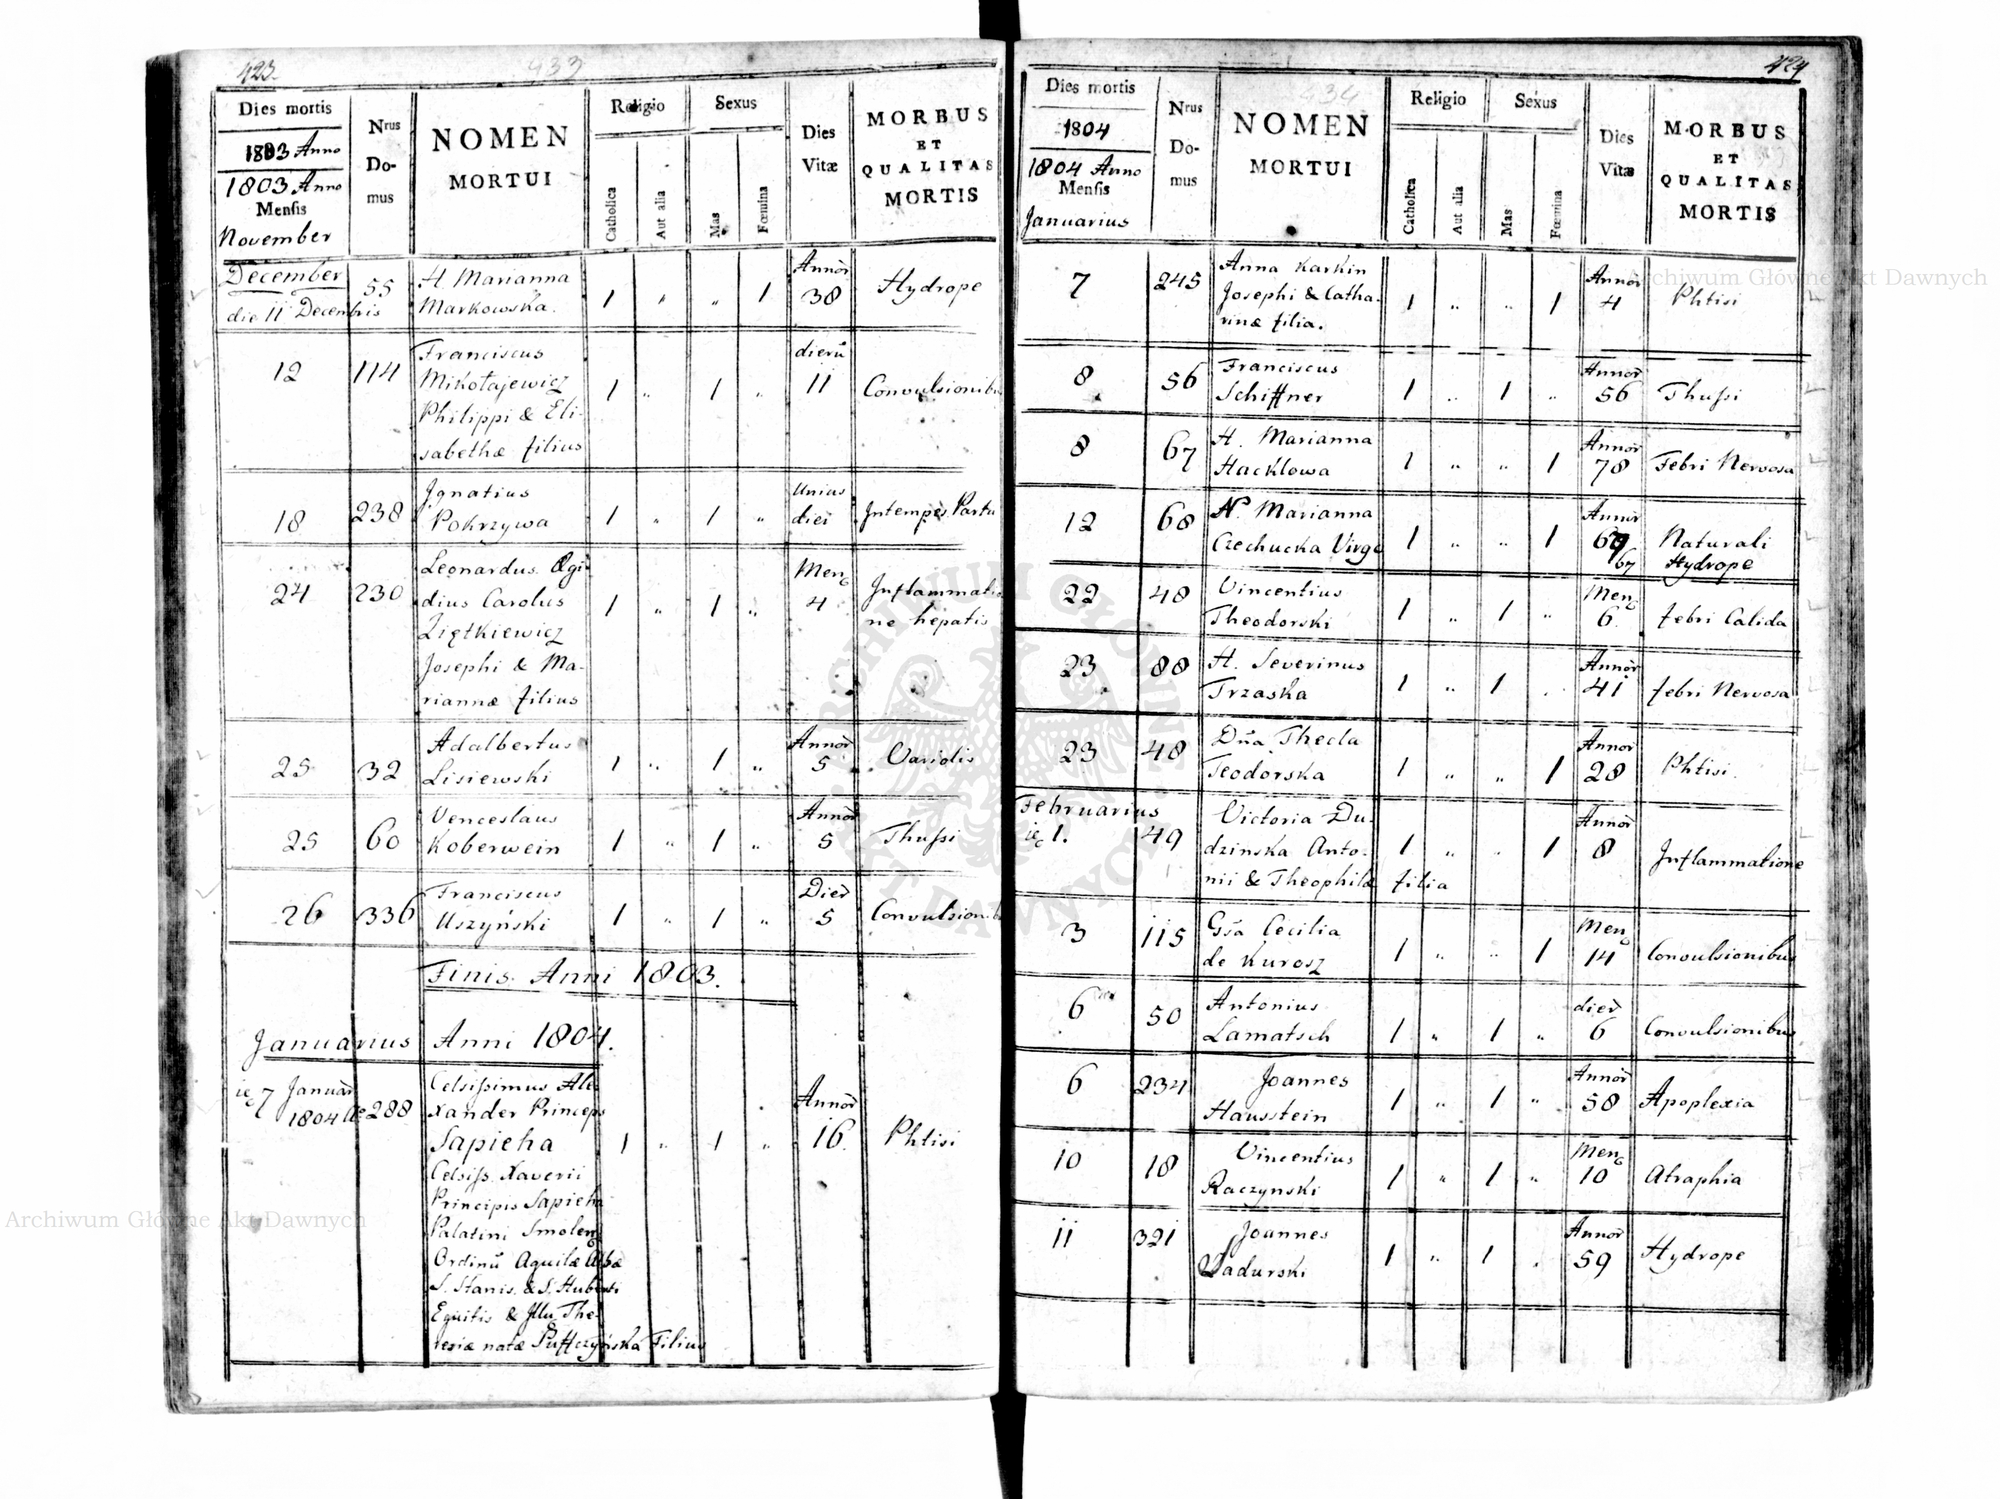 423.
433
Dies mortis
1803 Anno
1803 Anno
Mensis
November
Nrus
Do-
mus
NOMEN
MORTUI
Religio
Catholica
Aut alia
Sexus
Mas
Fœmina
Dies
Vitæ
MORBUS
ET
QUALITAS
MORTIS
December
die 11 Decembris
55
H Marianna
Markowska.
1 " " 1
Annor
38
Hydrope
12
114
Franciscus
Mikołajewicz
Philippi & Eli-
sabethæ filius
1 " 1 "
dierū
11
Convulsionibu
18
238
Ignatius
Pokrzywa
1 " 1 "
Unius
diei
Intempes. Partu
24
230
Leonardus Ægi
dius Carolus
Ziętkiewicz
Josephi & Ma-
riannæ filius
1 " 1 "
Men
4
Inflammatio
ne hepatis
25
32
Adalbertus
Lisiewski
1 " 1 "
Annor
5
Variolis
25
60
Venceslaus
Koberwein
1 " 1 "
Annor
5
Thussi
26
336
Franciscus
Uszyński
1 " 1 "
Dier
5
Convulsionib
Finis Anni 1803.
Januarius Anni 1804.
7 Januar
1804
288
Celsissimus Ale
xander Princeps
Sapieha
Celsiss. Xaverii
Principis Sapieha
Palatini Smolen
Ordinū Aquilæ Albæ
S. Stanis. & S. Huberti
Equitis & Illu. The-
resiæ natæ Suffczyńska Filius
1 " 1 "
Annor
16.
Phtisi
424
434
Dies mortis
1804
1804 Anno
Mensis
Januarius
Nrus
Do-
mus
NOMEN
MORTUI
Religio
Catholica
Aut alia
Sexus
Mas
Fœmina
Dies
Vitæ
MORBUS
ET
QUALITAS
MORTIS
7
245
Anna Karkin
Josephi & Catha-
rinæ filia.
1 " " 1
Annor
4
Phtisi
8
56
Franciscus
Schiffner
1 " 1 "
Annor
56
Thussi
8
67
H. Marianna
Hacklowa
1 " " 1
Annor
78
Febri Nervosa
12
68
N. Marianna
Czechucka Virgo
1 " " 1
Annor
67
67
Naturali
Hydrope
22
48
Vincentius
Theodorski
1 " 1 "
Men
6.
febri Calida
23
88
H. Severinus
Trzaska
1 " 1 "
Annor
41
febri Nervosa
23
48
Dña Thecla
Teodorska
1 " " 1
Annor
28
Phtisi.
Februarius
1.
49
Victoria Du-
dzinska Anto-
nii & Theophilæ filia
1 " " 1
Annor
8
Inflammatione
3
115
Gsa Cecilia
de Kurosz
1 " " 1
Men
14
Convulsionibus
6
50
Antonius
Lamatsch
1 " 1 "
dier
6
Convulsionibus
6
234
Joannes
Hausstein
1 " 1 "
Annor
58
Apoplexia
10
18
Vincentius
Raczynski
1 " 1 "
Men
10
Atraphia
11
321
Joannes
Zadurski
1 " 1 "
Annor
59
Hydrope
Archiwum Główne Akt Dawnych
Archiwum Główne Akt Dawnych
ARCHIWUM GŁÓWNE AKT DAWNYCH